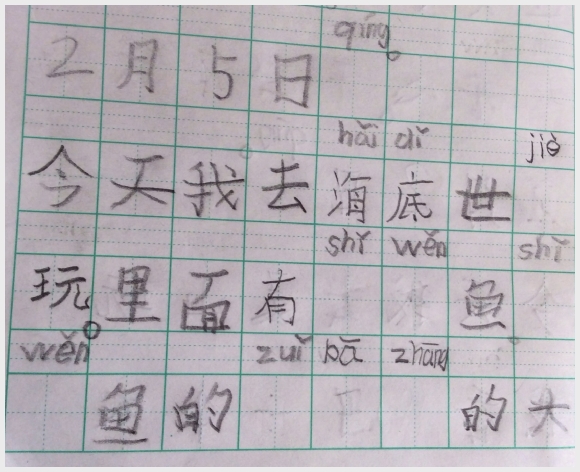 qíng。
2月5日
hǎi dǐ jiè
今天我去海底世
shǐ wěn shǐ
玩里面有鱼
wěn。zuǐ bā zhāng
鱼的的大